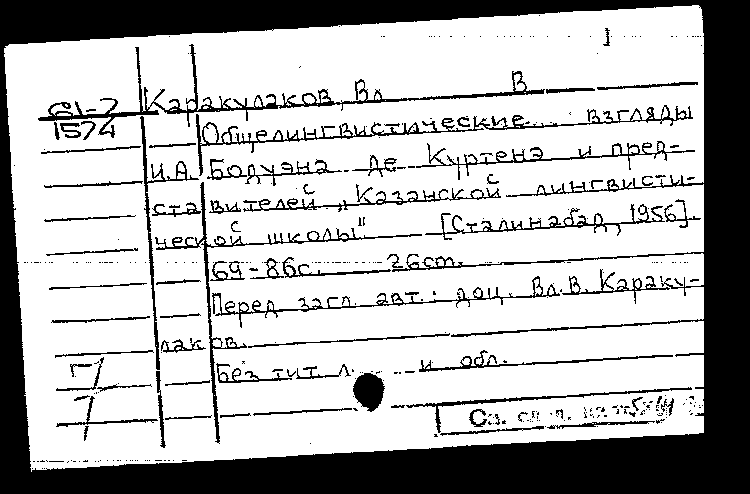 61-7
1574
Каракулаков, Вл В
Общелингвистические взгляды
И.А. Бодуэна де Куртенэ и пред-
ставителей „Казанской лингвисти-
ческой школы" [Сталинабад, 1956].
69-86с. 26см.
Перед загл. авт.: доц. Вл. В. Караку-
лаков.
Без тит. л. и обл.
Г
7
См.